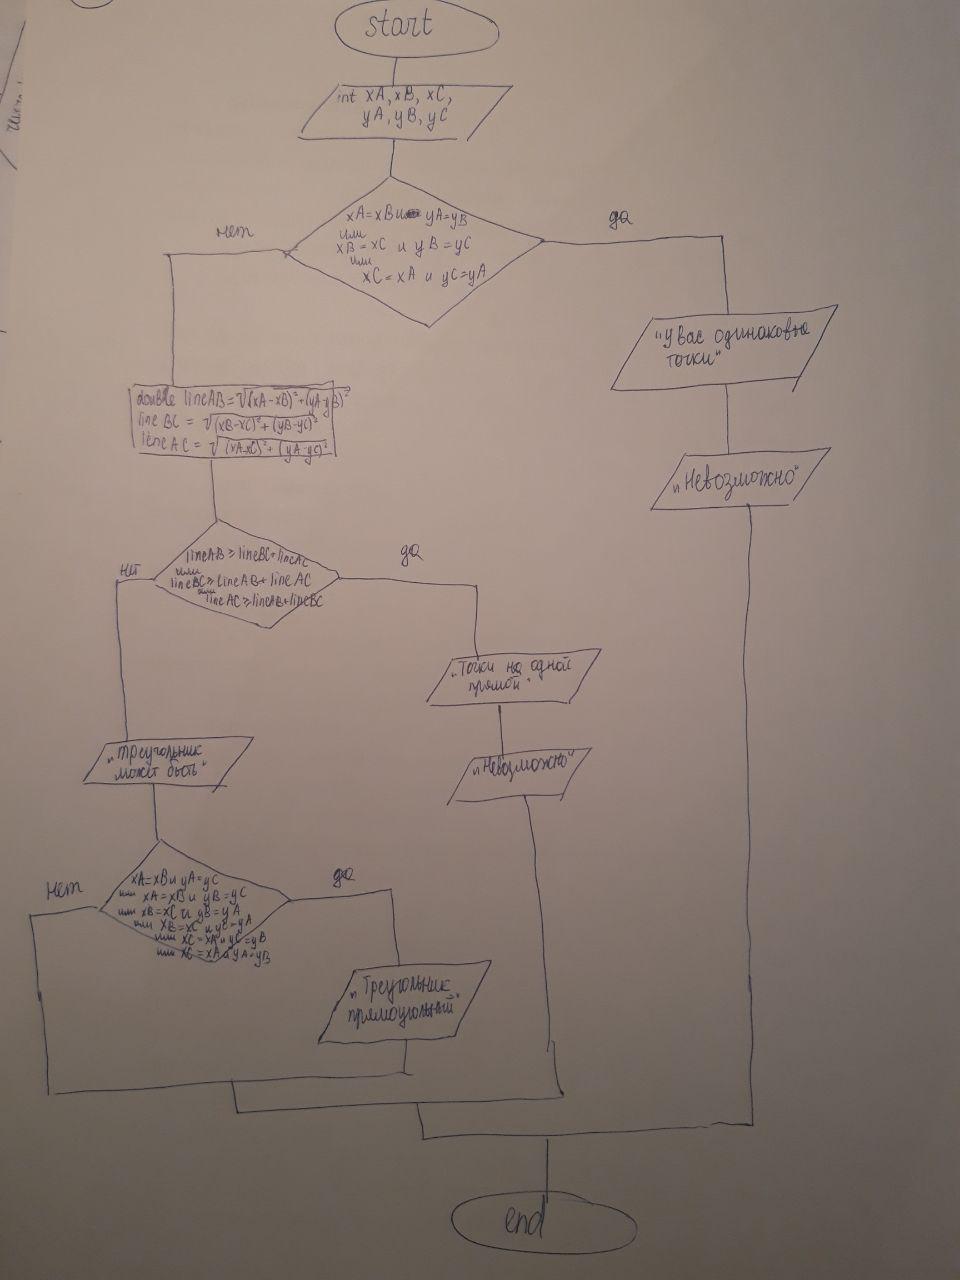 start
int xA, xB, xC,
yA, yB, yC
xA=xB и yA=yB
или
xB=xC и yB=yC
или
xC=xA и yC=yA
нет
да
"У вас одинаковые
точки"
"Невозможно"
double lineAB=√(xA-xB)²+(yA-yB)²
lineBC = √(xB-xC)²+(yB-yC)²
lineAC = √(xA-xC)²+(yA-yC)²
lineAB ≥ lineBC+lineAC
или
lineBC ≥ lineAB+lineAC
или
lineAC ≥ lineAB+lineBC
нет
да
"Точки на одной
прямой"
"Невозможно"
"Треугольник
может быть"
xA=xB и yA=yC
или xA=xB и yB=yC
или xB=xC и yB=yA
или xB=xC и yC=yA
или xC=xA и yC=yB
или xC=xA и yA=yB
нет
да
"Треугольник
прямоугольный"
end